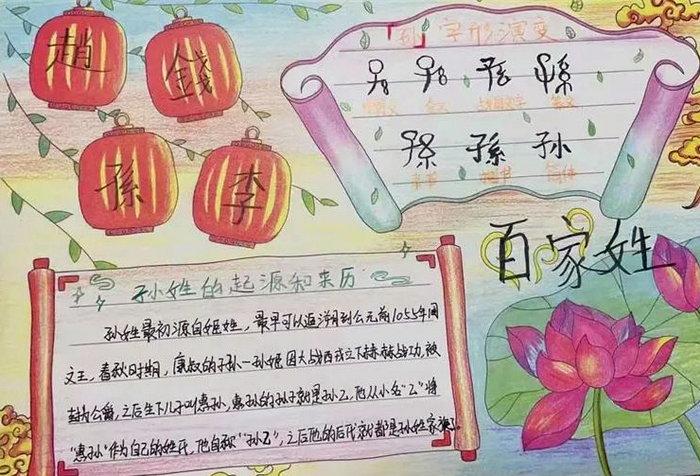 趙
錢
孫
李
「孙」字形演变
甲骨文 金文 战国文字 篆文
隶书 楷书 简体
孫 孙
百家姓
孙姓的起源和来历
孙姓最初源自姬姓，最早可以追溯到公元前1055年周
文王，春秋时期，康叔的子孙一孙姬因大战西成立下赫赫战功，被
封为公爵，之后生下儿子叫惠孙，惠孙的孙子就是孙乙，他从小名"乙"将
"惠孙"作为自己的姓氏，他自称"孙乙"，之后他的后代就都是孙姓家族。